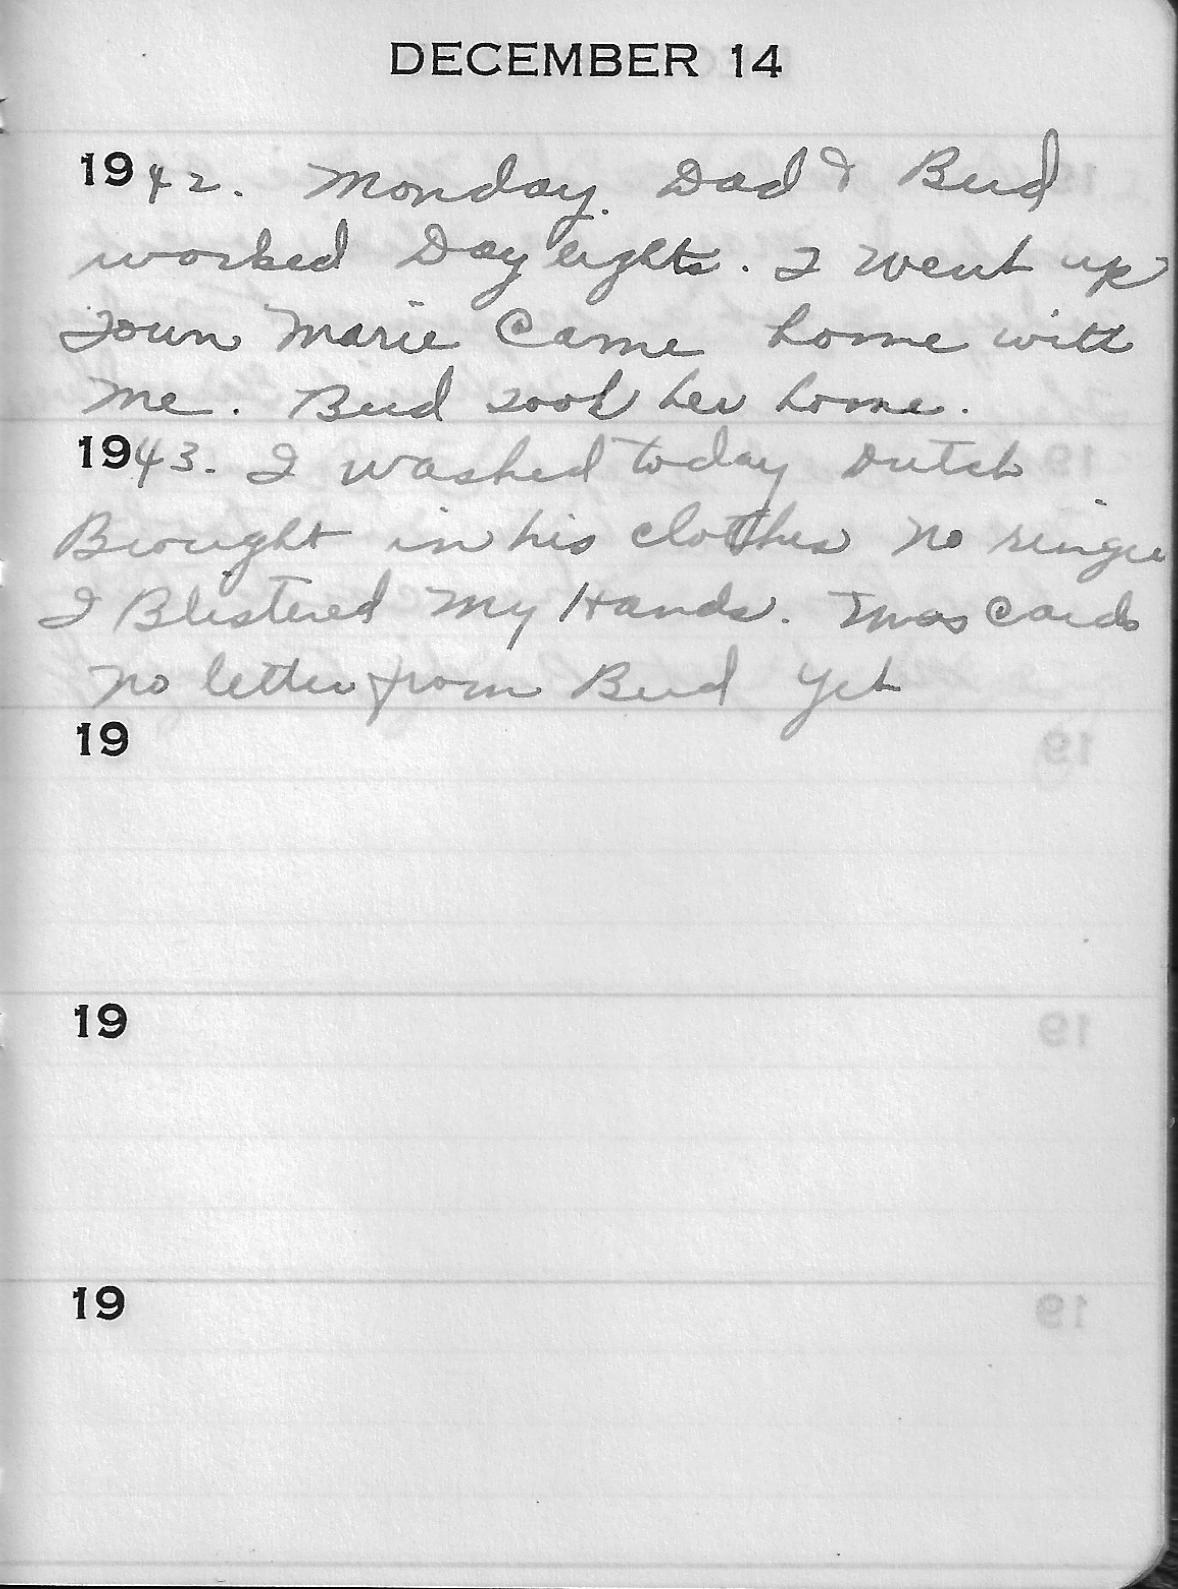 DECEMBER 14
1942. Monday. Dad & Bud
worked Day lights. I went up
Town Marie Came home with
me. Bud took her home.
1943. I washed today Dutch
Brought in his clothes no ringer
I Blistered My Hands. Xmas Cards
no letter from Bud yet
19
19
19